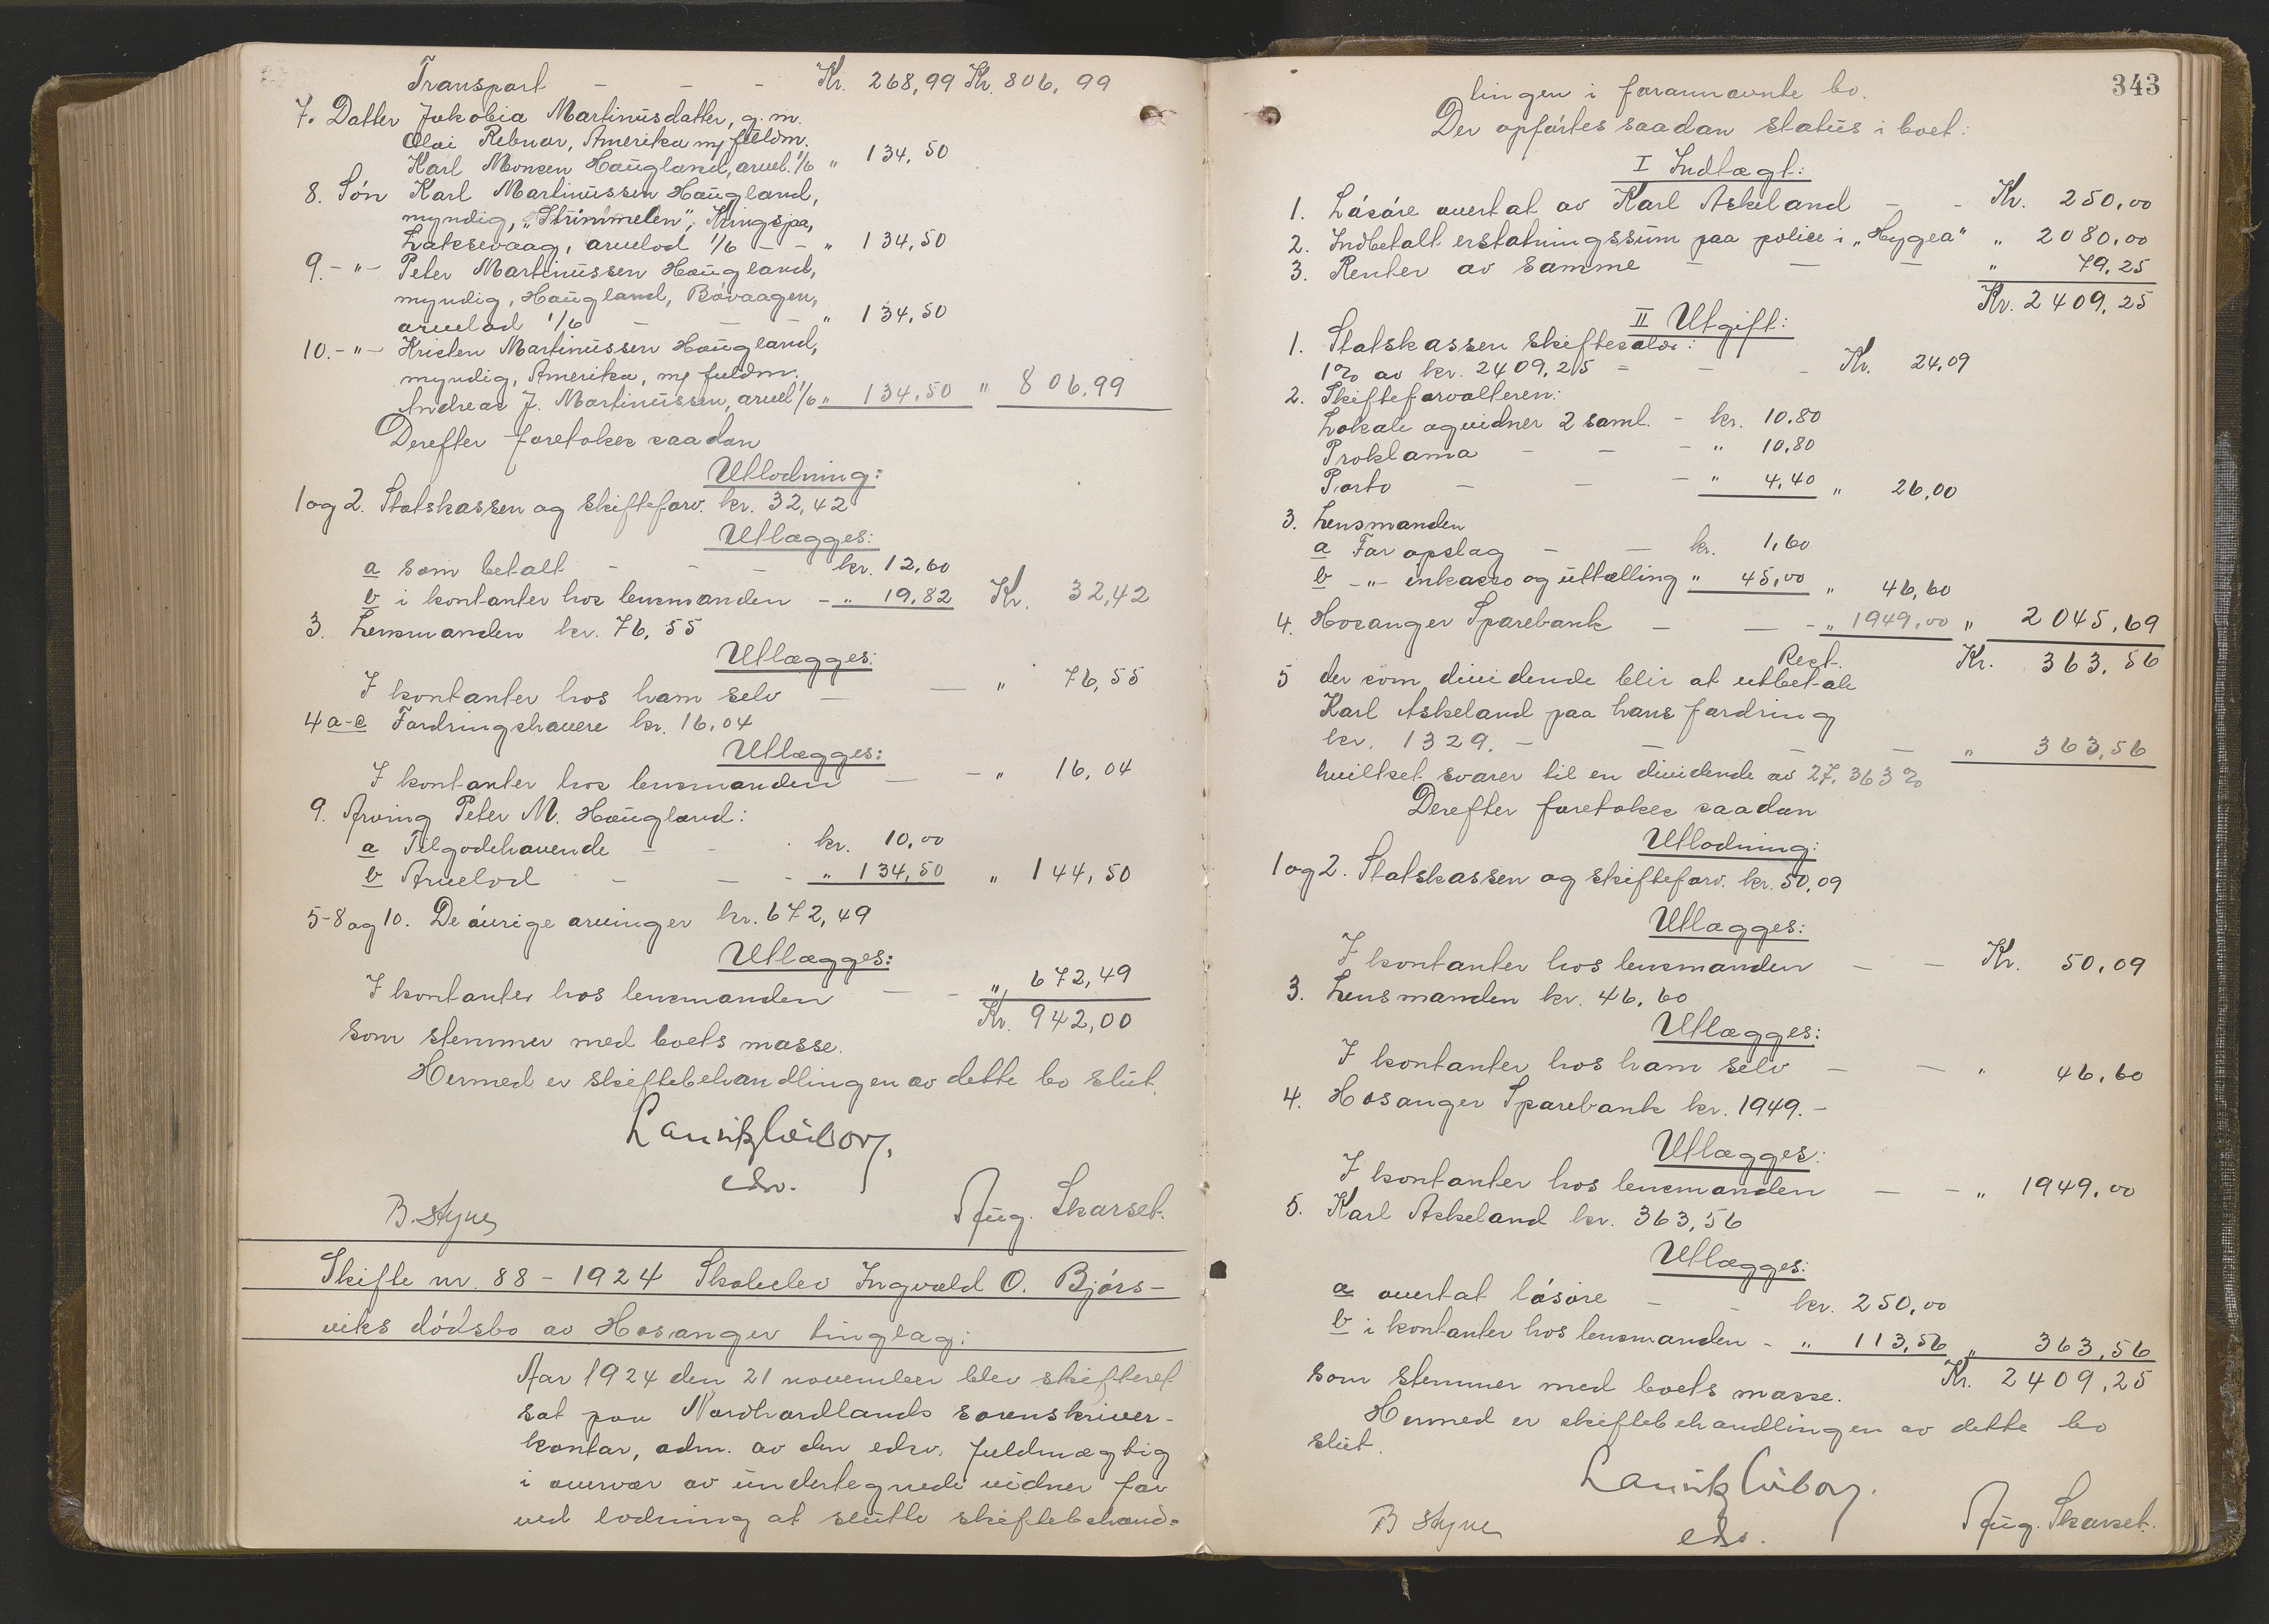 Transport - - - Kr. 268,99 Kr. 806,99
7. Datter Jakobia Martinusdatter, g. m.
Olai Rebnor, Amerika m/ fuldm.
Karl Monsen Haugland, arvel. 1/6 " 134,50
8. Søn Karl Martinussen Haugland,
myndig, "Strimmelen", Kringsjaa,
Laksevaag, arvelod 1/6 - - " 134,50
9. -"- Peter Martinussen Haugland,
myndig, Haugland, Bøvaagen,
arvelod 1/6 - - - " 134,50
10. -"- Kristen Martinussen Haugland,
myndig, Amerika, m/ fuldm.
Andreas J. Martinussen, arvel 1/6 " 134,50 " 806,99
Derefter foretokes saadan
Utlodning:
1 og 2. Statskassen og skifteforv. kr. 32,42
Utlægges:
a som betalt - - - kr. 12,60
b i kontanter hos lensmanden - " 19,82 Kr. 32,42
3. Lensmanden kr. 76,55
Utlægges:
I kontanter hos ham selv - - " 76,55
4 a-c Fordringshavere kr. 16,04
Utlægges:
I kontanter hos lensmanden - - " 16,04
9. Arving Peter M. Haugland:
a Tilgodehavende - - kr. 10,00
b Arvelod - - - " 134,50 " 144,50
5-8 og 10. De øvrige arvinger kr. 672,49
Utlægges:
I kontanter hos lensmanden - - " 672,49
Kr. 942,00
som stemmer med boets masse.
Hermed er skiftebehandlingen av dette bo slut.
edsv.
B. Styve Aug. Skarset.
Skifte nr. 88 - 1924 Skoleelev Ingvald O. Bjørs-
viks dødsbo av Hosanger tinglag:
Aar 1924 den 21 november blev skifteret
sat paa Nordhordlands sorenskriver-
kontor, adm. av den edsv. fuldmægtig
i overvær av undertegnede vidner for
ved lodning at slutte skiftebehand-
343
lingen i forannævnte bo.
Der opførtes saadan status i boet:
I Indtægt:
1. Løsøre overtat av Karl Askeland - - Kr. 250,00
2. Indbetalt erstatningssum paa police i "Hygea" " 2080,00
3. Renter av samme - - - " 79,25
Kr. 2409,25
II Utgift:
1. Statskassen skiftesalær:
1% av kr. 2409,25 - - - Kr. 24,09
2. Skifteforvalteren:
Lokale og vidner 2 saml. - kr. 10.80
Proklama - - - " 10,80
Porto - - - " 4,40 " 26,00
3. Lensmanden
a For opslag - - kr. 1,60
b -"- inkasso og uttælling " 45,00 " 46,60
4. Hosanger Sparebank - - - " 1949,00 " 2045,69
Rest. Kr. 363,56
5 der som dividende blir at utbetale
Karl Askeland paa hans fordring
kr. 1329.- - - - " 363,56
hvilket svarer til en dividende av 27,363%
Derefter foretokes saadan
Utlodning:
1 og 2. Statskassen og skifteforv. kr. 50,09
Utlægges:
I kontanter hos lensmanden - - Kr. 50,09
3. Lensmanden kr. 46,60
Utlægges:
I kontanter hos ham selv - - " 46,60
4. Hosanger Sparebank kr. 1949.-
Utlægges:
I kontanter hos lensmanden - - " 1949,00
5. Karl Askeland kr. 363,56
Utlægges:
a overtat løsøre - - kr. 250,00
b i kontanter hos lensmanden - " 113,56 " 363,56
som stemmer med boets masse. Kr. 2409,25
Hermed er skiftebehandlingen av dette bo
slut.
B Styve edsv. Aug. Skarset.